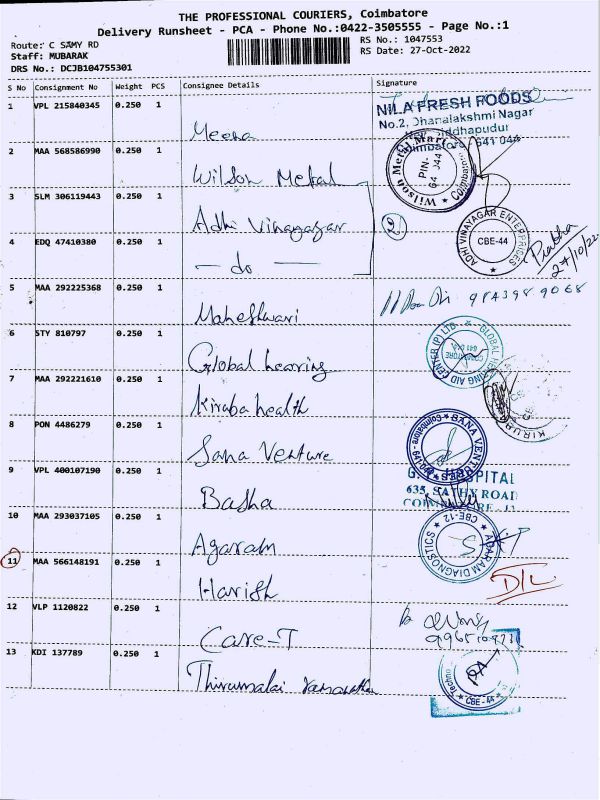 THE PROFESSIONAL COURIERS, Coimbatore
Delivery Runsheet - PCA - Phone No.:0422-3505555 - Page No.:1
Route: C SAMY RD
RS No.: 1047553
Staff: MUBARAK
RS Date: 27-Oct-2022
DRS No.: DCJB104755301
S No Consignment No Weight PCS Consignee Details Signature
1 VPL 215840345 0.250 1 Meena
NILA FRESH FOODS
No.2, Dhanalakshmi Nagar
Siddhapudur
Coimbatore 641 044
2 MAA 568586990 0.250 1 Wilson Metal
Wilson Metal Mart Coimbatore
PIN-
3 SLM 306119443 0.250 1 Adhi Vinayagar
2
ADHI VINAYAGAR ENTERPRISES
CBE-44
Prabha
27/10/22
4 EDQ 47410380 0.250 1 — do —
5 MAA 292225368 0.250 1 Maheshwari
6 STY 810797 0.250 1 Global hearing
GLOBAL HEARING AID CENTER (P) LTD.
7 MAA 292221610 0.250 1 Kiruba health
8 PON 4486279 0.250 1 Sana Venture
SANA VENTURES
Coimbatore
9 VPL 400107190 0.250 1 Basha
HOSPITAL
635, SATHY ROAD
10 MAA 293037105 0.250 1 Agaram
AGARAM DIAGNOSTICS
CBE-12
11 MAA 566148191 0.250 1 Harish
DTL
12 VLP 1120822 0.250 1 Care-T
13 KDI 137789 0.250 1 Thirumalai
CBE-44